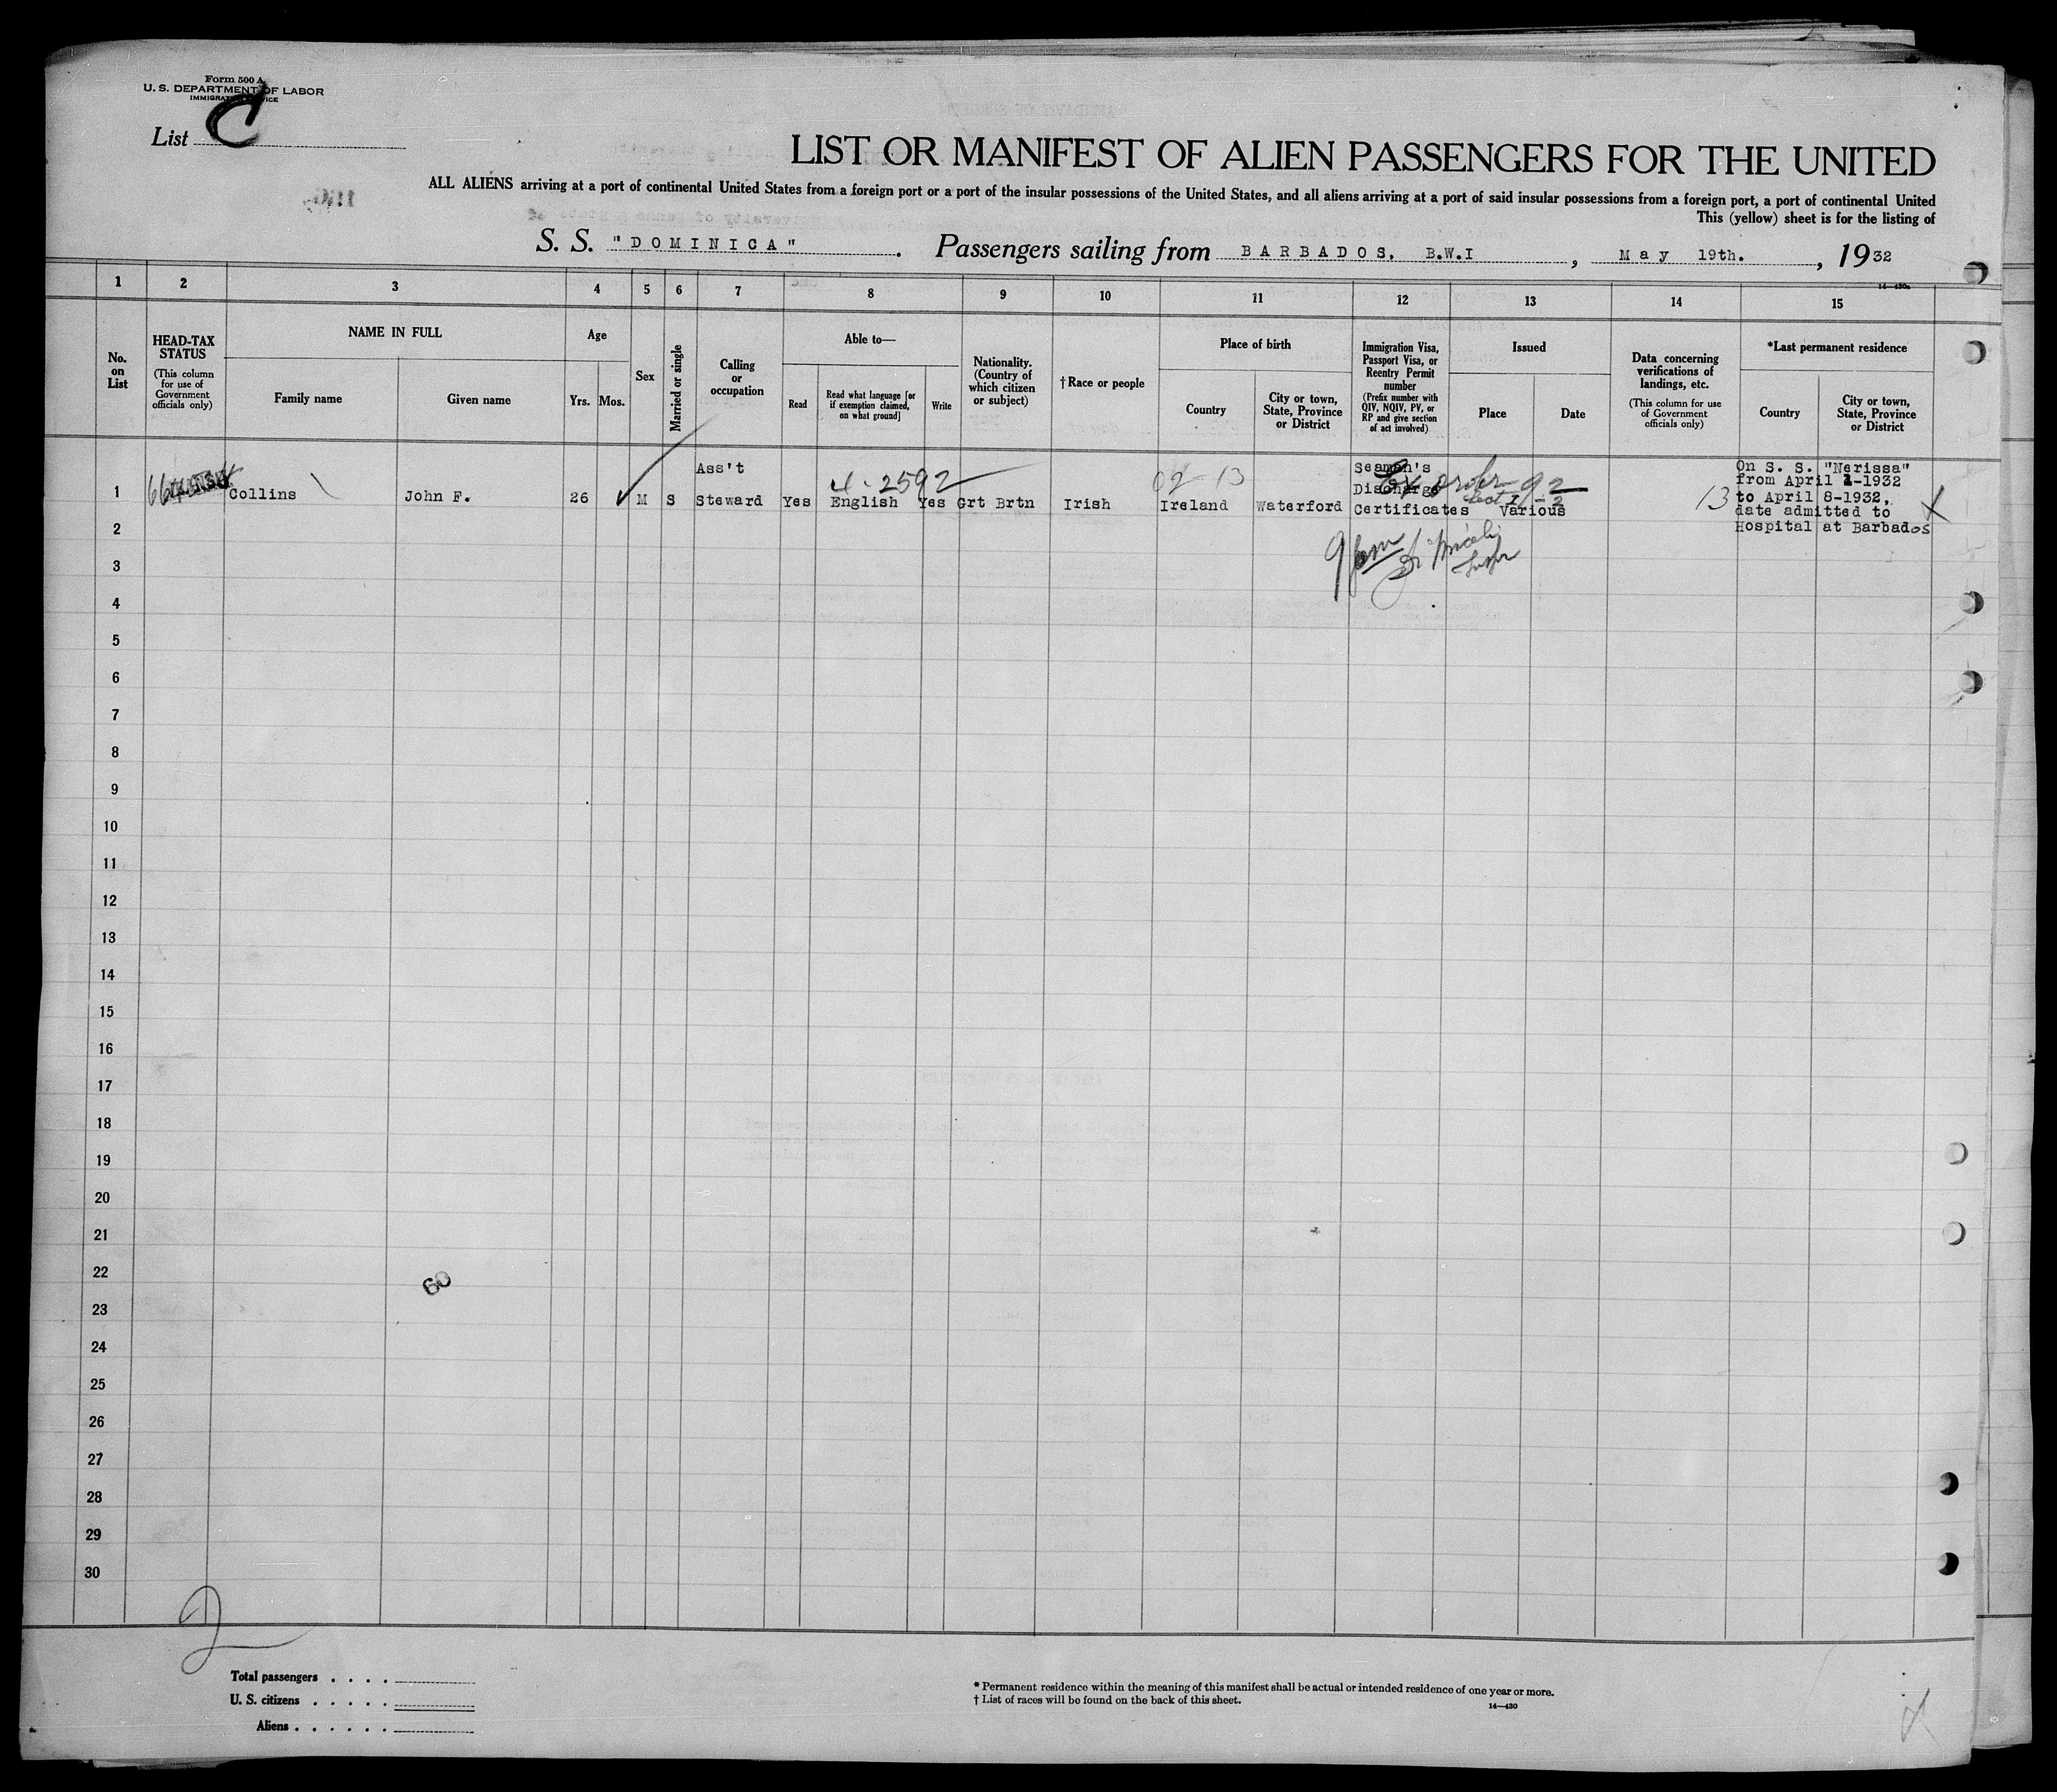 Form 500 A
U. S. DEPARTMENT OF LABOR
IMMIGRATION SERVICE
List C
LIST OR MANIFEST OF ALIEN PASSENGERS FOR THE UNITED
ALL ALIENS arriving at a port of continental United States from a foreign port or a port of the insular possessions of the United States, and all aliens arriving at a port of said insular possessions from a foreign port, a port of continental United
This (yellow) sheet is for the listing of
S. S. "DOMINICA". Passengers sailing from BARBADOS, B.W.I, May 19th., 1932
14—430a
1 2 3 4 5 6 7 8 9 10 11 12 13 14 15
No. on List
HEAD-TAX STATUS
(This column for use of Government officials only)
NAME IN FULL
Family name
Given name
Age
Yrs. Mos.
Sex
Married or single
Calling or occupation
Able to—
Read
Read what language [or if exemption claimed, on what ground]
Write
Nationality. (Country of which citizen or subject)
†Race or people
Place of birth
Country
City or town, State, Province or District
Immigration Visa, Passport Visa, or Reentry Permit number
(Prefix number with QIV, NQIV, PV, or RP and give section of act involved)
Issued
Place
Date
Data concerning verifications of landings, etc.
(This column for use of Government officials only)
*Last permanent residence
Country
City or town, State, Province or District
1 Collins John F. 26 M S Ass't Steward Yes English Yes Grt Brtn Irish Ireland Waterford Seaman's Discharge Certificates Various
4-2592
02-13
Ex order 92
Sect I - 3
13
On S. S. "Nerissa"
from April 1-1932
to April 8-1932,
date admitted to
Hospital at Barbados
X
2
3
4
5
6
7
8
9
10
11
12
13
14
15
16
17
18
19
20
21
22
60
23
24
25
26
27
28
29
30
Total passengers . . . .
U. S. citizens . . . . .
Aliens . . . . . .
* Permanent residence within the meaning of this manifest shall be actual or intended residence of one year or more.
† List of races will be found on the back of this sheet.
14—430